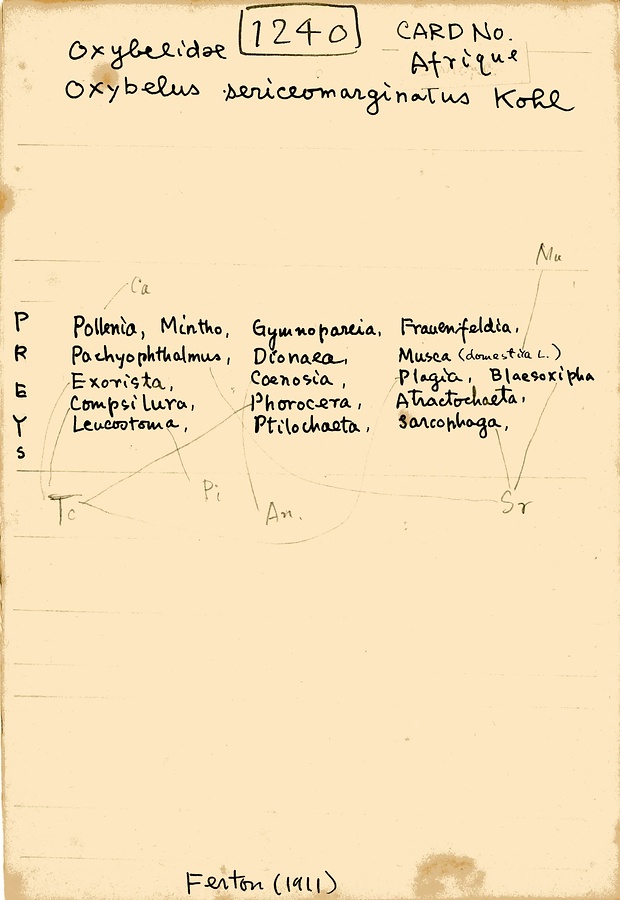 Oxybelidae 1240 CARD No.
Afrique
Oxybelus sericeomarginatus Kohl
Mu
Ca
PREYS
Pollenia, Mintho, Gymnopareia, Frauenfeldia,
Pachyophthalmus, Dionaea, Musca (domestica L.)
Exorista, Coenosia, Plagia, Blaesoxipha
Compsilura, Phorocera, Atractochaeta,
Leucostoma, Ptilochaeta, Sarcophaga,
Tc Pi An. Sr
Ferton (1911)